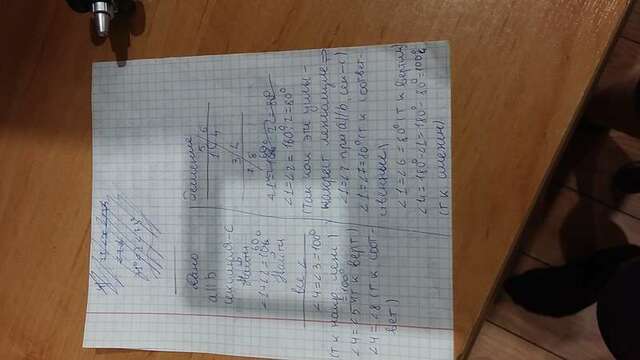 Дано
a||b
секущая-с
∠1+∠2=160°
Найти
все ∠
∠4=∠3=100°
(т к накр. леж.)
=100°
∠4=∠5 (т к верт)
∠4=∠8 (т к соот-
вет)
Решение
5/6
1/4
3/2
7/8
∠1=∠2=160°:2=80°
(Так как эти углы-
накрест лежащие ⇒
∠1=∠2 при a||b, сек-с)
∠1=∠7=80° (т к соответ-
ственные)
∠1=∠6=80° (т к вертик)
∠4=180°-∠1=180°-80°=100°
(т к смежн)